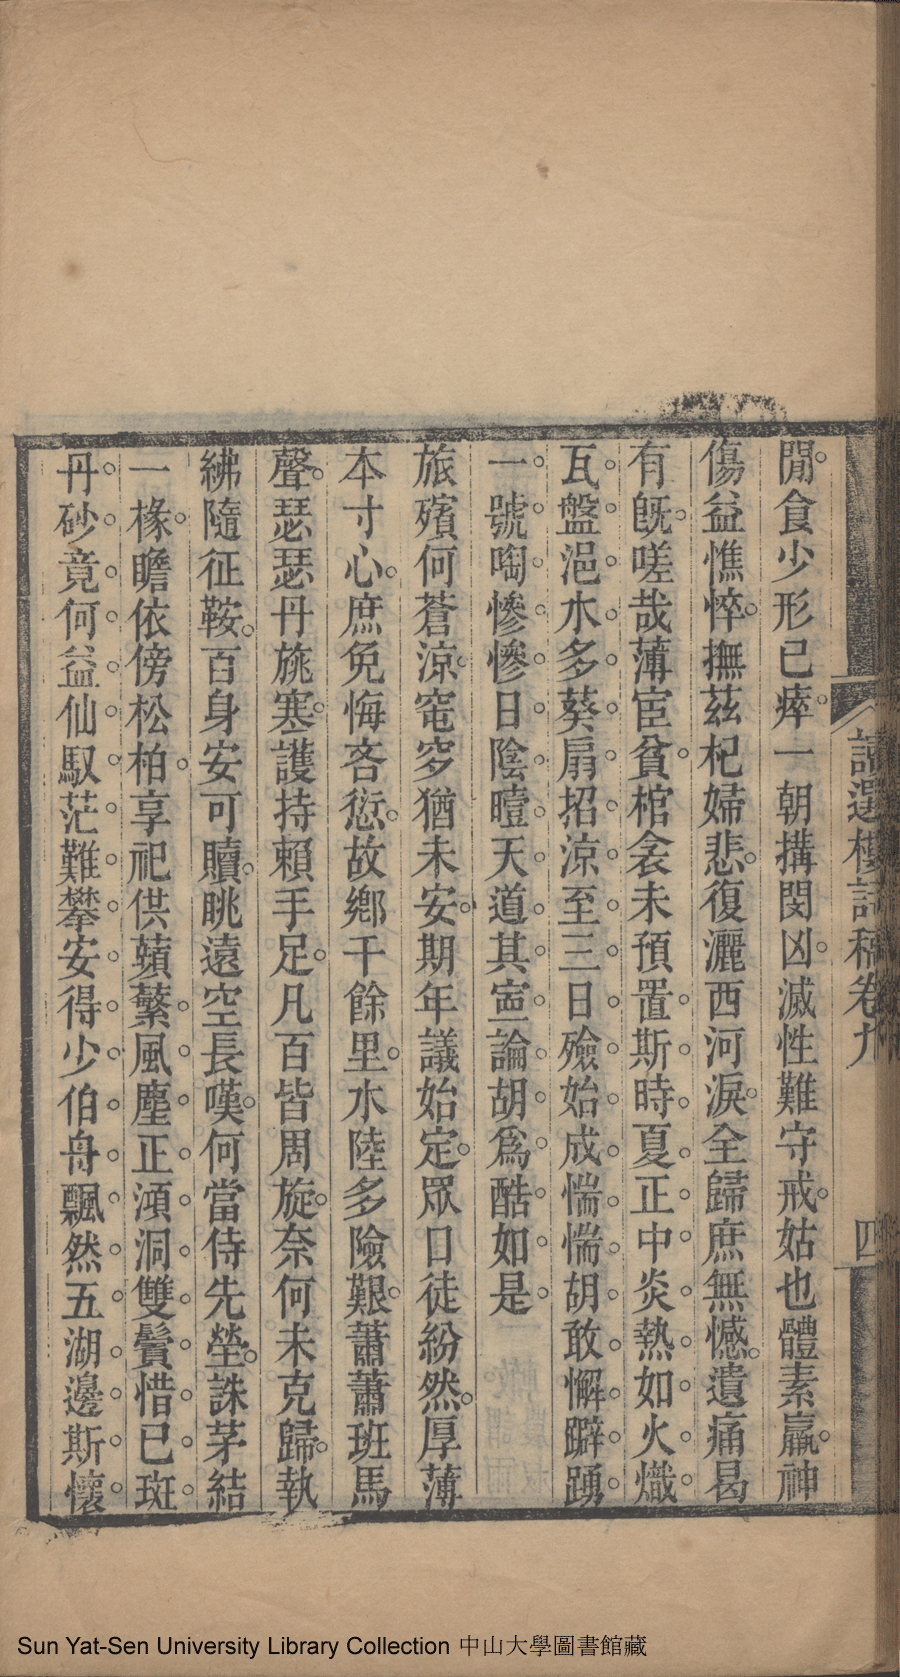 閒食少形已瘁一朝搆閔凶滅性難守戒姑也體素羸神
傷益憔悴撫茲杞婦悲復灑西河淚全歸庶無憾遺痛曷
有旣嗟哉薄宦貧棺衾未預置斯時夏正中炎熱如火熾
瓦盤浥水多葵扇招涼至三日殮始成惴惴胡敢懈躃踴
一號啕慘慘日陰曀天道其寔論胡爲酷如是
旅殯何蒼涼窀穸猶未安期年議始定眾口徒紛然厚薄
本寸心庶免悔吝愆故鄉千餘里水陸多險艱蕭蕭班馬
聲瑟瑟丹旐寒護持賴手足凡百皆周旋奈何未克歸執
紼隨征鞍百身安可贖眺遠空長嘆何當侍先塋誅茅結
一椽瞻依傍松柏享祀供蘋蘩風塵正澒洞雙鬢惜已斑
丹砂竟何益仙馭茫難攀安得少伯舟飄然五湖邊斯懷
讀選樓詩稿卷九
四
Sun Yat-Sen University Library Collection 中山大學圖書館藏